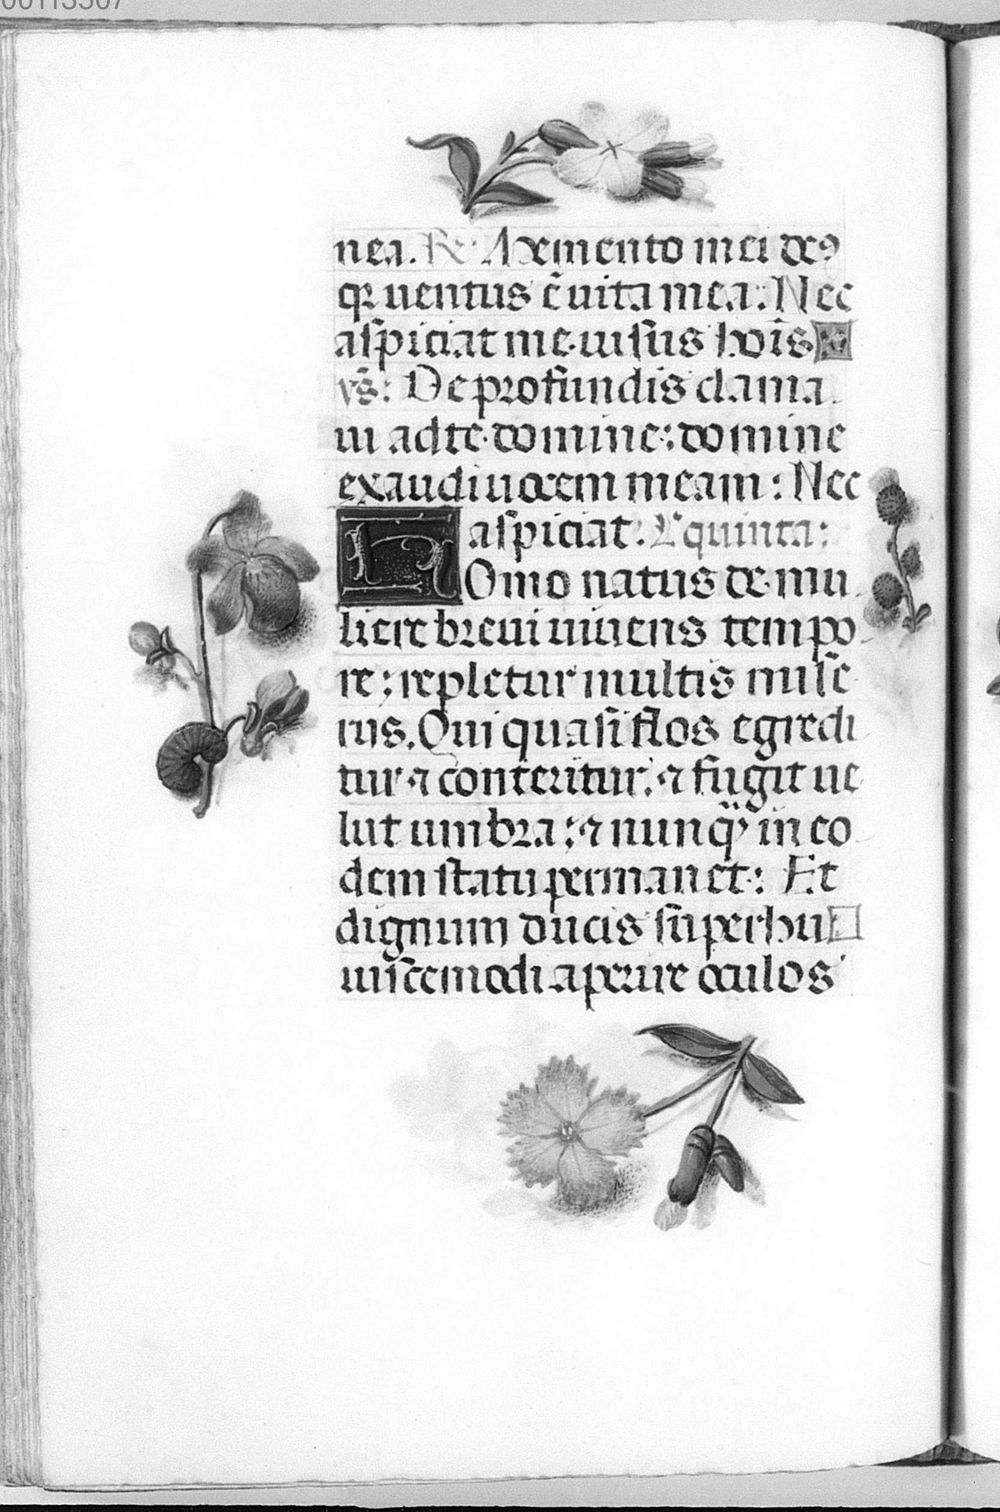 00113507
nea. R Memento mei deꝰ
qꝛ uentus ē uita mea: Nec
aspiciat me uisus hoīs
vs̄: De profundis clama
ui ad te domine: domine
exaudi uocem meam: Nec
aspiciat. L̃ quinta:
HOmo natus de mu
liere breui uiuens tempo
re: repletur multis mise
riis. Qui quasi flos egredi
tur ⁊ conteritur: ⁊ fugit ue
lut umbra: ⁊ nunq̄ in eo
dem statu permanet: Et
dignum ducis super hu
iuscemodi aperire oculos